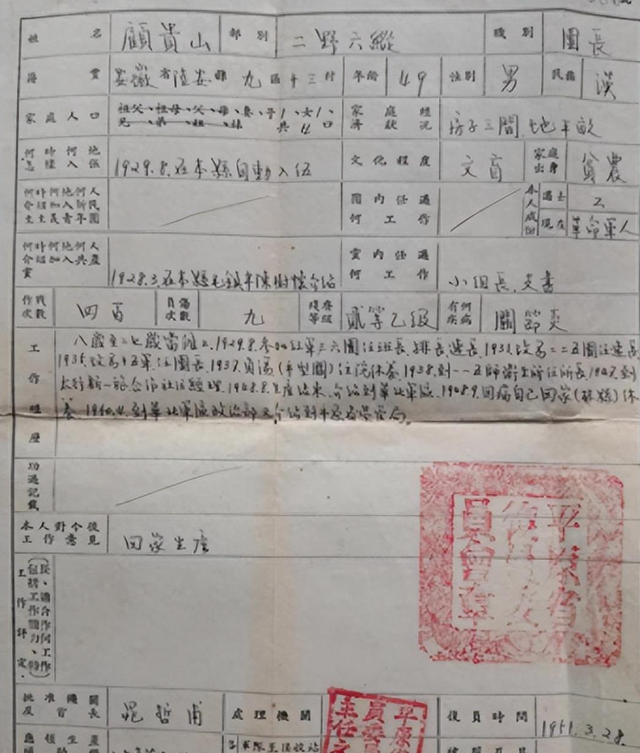 姓名 顧貴山 部別 二野六縱 職別 團長
籍貫 安徽省陸安縣九區十三村 年齡 49 性別 男 民族 漢
家庭人口 祖父、祖母、父、母、妻、子1、女1 兄、弟、姐、妹 共 4 口 家庭經濟狀況 房子三間,地半畝
何時何地怎樣入伍 1929.8.在本縣自動入伍 文化程度 文盲 家庭出身 貧農
何時何地何人介紹加入新民主主義青年團 團內任過何工作 本人成份 過去 工 現在 革命軍人
何時何地何人介紹加入共產黨 1928.3.在本縣 介紹 黨內任過何工作 小組長,支書
作戰次數 四百 負傷次數 九 殘廢等級 貳等乙級 有何疾病 關節炎
工作經歷
八歲至二七歲當僱工.1929.8.參加紅軍三六團任班長,排長,連長,1931.改為二二五團任連長
1935.改為十五軍任團長,1937.負傷(平型關)住院休養.1938.到一一五師衛生所任所長,1947.到
太行 合作社任經理.1948.8.生產結束,介紹到華北軍區.1948.9.因病自己回家(林縣)休
養.1950.4.到華北軍區政治部又介紹到平原省 管局。
功過記載
本人對今後工作意見 回家生產
工作評定(包括工作能力、特長、適合作何工作)
平原省復員委員會章
批准機關及首長 晁哲甫 處理機關 平原 員委員 主任 復員時間 1951.3.28